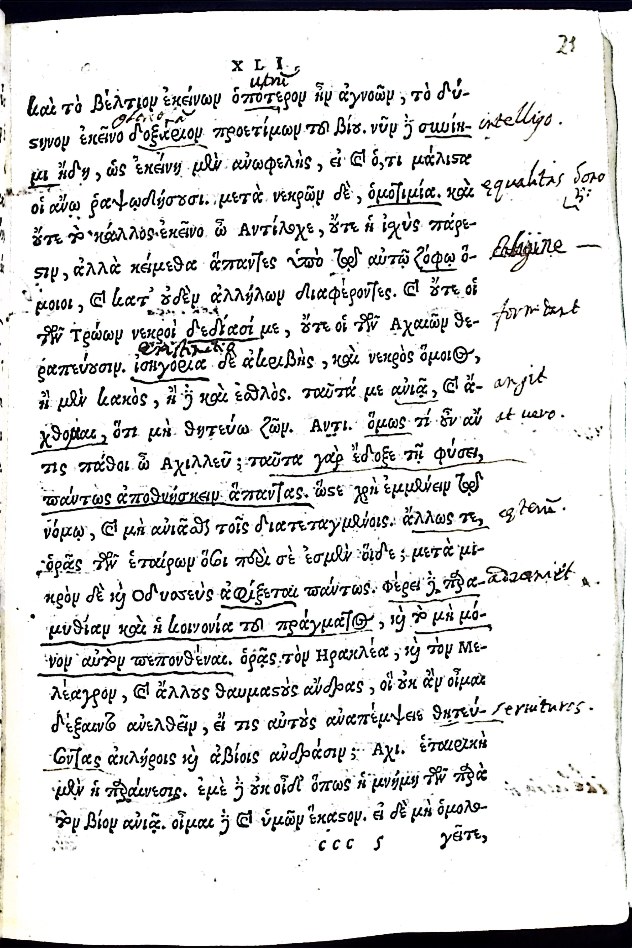 23
XLI.
καὶ τὸ βέλτιον ἐκείνων ὁπότερον ἦν ἀγνοῶν, τὸ δύ-
στηνον ἐκεῖνο δοξάριον προετίμων τοῦ βίου. νῦν ἢ συνίη- intelligo.
μι ἤδη, ὡς ἐκείνη μὲν ἀνωφελὴς, εἰ καὶ ὅ,τι μάλιστα
οἱ ἄνω ῥαψωδήσουσι. μετὰ νεκρῶν δὲ, ὁμοτιμία. καὶ equalitas
οὔτε τὸ κάλλος ἐκεῖνο ὦ Ἀντίλοχε, οὔτε ἡ ἰχὺς πάρε-
στιν, ἀλλὰ κείμεθα ἅπαντες ὑπὸ τῷ αὐτῷ ζόφῳ ὅ- Caligine
μοιοι, καὶ κατ' οὐδὲν ἀλλήλων διαφέροντες. καὶ οὔτε οἱ
τῶν Τρώων νεκροὶ δεδίασί με, οὔτε οἱ τῶν Ἀχαιῶν θε- formidant
ραπεύουσιν. ἰσηγορία δὲ ἀκριβὴς, καὶ νεκρὸς ὅμοιος,
ἢ μὲν κακὸς, ἢ ἢ καὶ ἐσθλὸς. ταῦτά με ἀνιᾷ, καὶ ἄ- angit
χθομαι, ὅτι μὴ θητεύω ζῶν. Αντι. ὅμως τί οὖν ἄν at uero.
τις πάθοι ὦ Αχιλλεῦ; ταῦτα γὰρ ἔδοξε τῇ φύσει,
πάντως ἀποθνήσκειν ἅπαντας. ὥστε χρὴ ἐμμένειν τῷ
νόμῳ, καὶ μὴ ἀνιᾶσθαι τοῖς διατεταγμένοις. ἄλλως τε,
ὁρᾷς τῶν ἑταίρων ὅσοι περὶ σὲ ἐσμὲν οἵδε; μετὰ μι-
κρὸν δὲ καὶ Οδυσσεὺς ἀφίξεται πάντως. φέρει ἢ παρα- adveniet
μυθίαν καὶ ἡ κοινωνία τοῦ πράγματος, καὶ τὸ μὴ μό-
νον αὐτὸν πεπονθέναι. ὁρᾷς τὸν Ηρακλέα, καὶ τὸν Με-
λέαγρον, καὶ ἄλλους θαυμαστοὺς ἄνδρας, οἳ οὐκ ἂν οἶμαι
δέξαιντο ἀνελθεῖν, εἴ τις αὐτοὺς ἀναπέμψειε θητεύ- seruituros.
σοντας ἀκλήροις καὶ ἀβίοις ἀνδράσιν; Αχι. ἑταιρικὴ
μὲν ἡ παραίνεσις. ἐμὲ ἢ οὐκ οἶδ' ὅπως ἡ μνήμη τῶν παρὰ
τὸν βίον ἀνιᾷ. οἶμαι ἢ καὶ ὑμῶν ἕκαστον. εἰ δὲ μὴ ὁμολο-
ccc 5 γεῖτε,